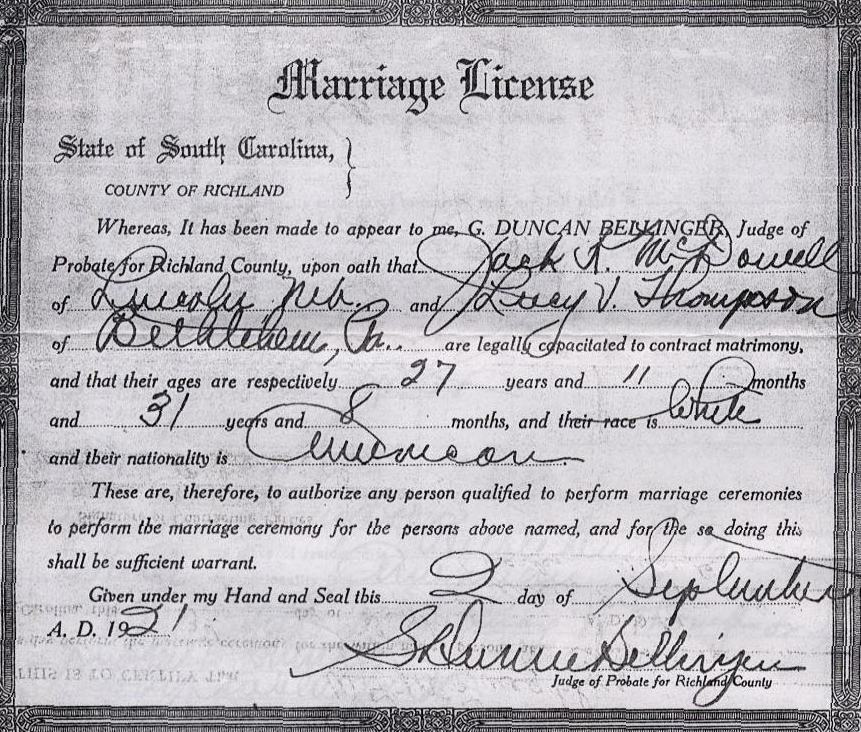 Marriage License
State of South Carolina,
COUNTY OF RICHLAND
Whereas, It has been made to appear to me, G. DUNCAN BELLINGER, Judge of
Probate for Richland County, upon oath that Jack K. McDowell
of Lincoln Neb. and Lucy V. Thompson
of Bethlehem, Pa. are legally capacitated to contract matrimony,
and that their ages are respectively 27 years and 11 months
and 31 years and 8 months, and their race is White
and their nationality is American
These are, therefore, to authorize any person qualified to perform marriage ceremonies
to perform the marriage ceremony for the persons above named, and for the so doing this
shall be sufficient warrant.
Given under my Hand and Seal this 2 day of September
A. D. 1921
G Duncan Bellinger
Judge of Probate for Richland County